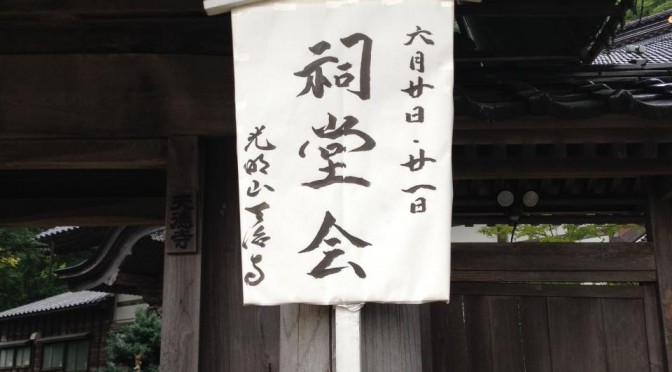 六月廿日・廿一日
祠堂会
光明山天徳寺
天徳寺